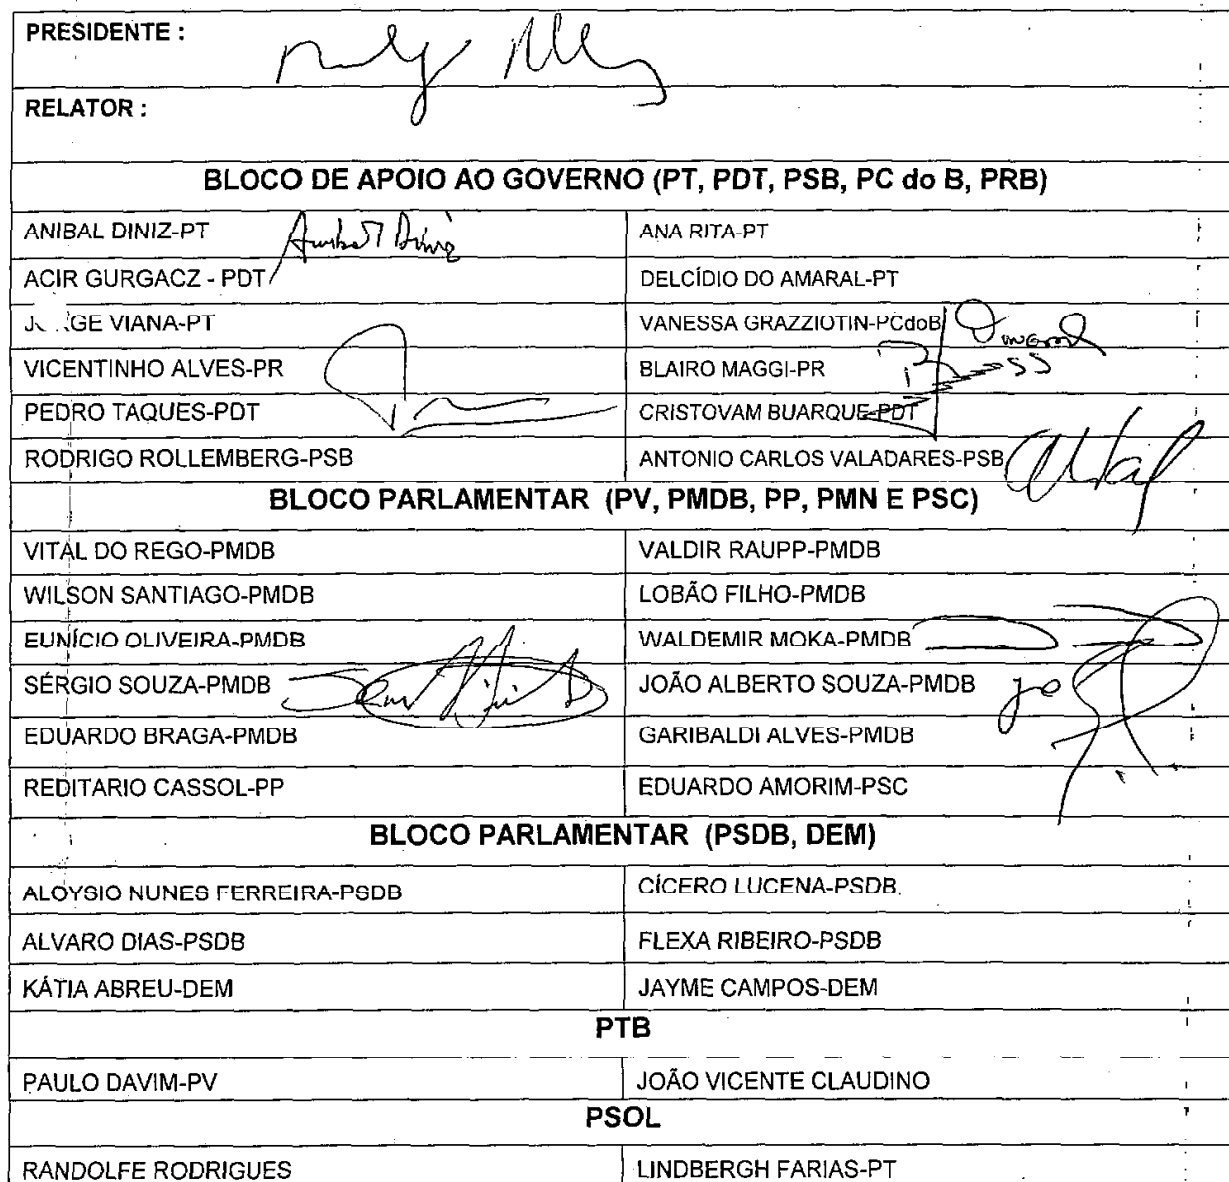 PRESIDENTE :
RELATOR :
BLOCO DE APOIO AO GOVERNO (PT, PDT, PSB, PC do B, PRB)
ANIBAL DINIZ-PT Anibal Diniz ANA RITA-PT
ACIR GURGACZ - PDT DELCÍDIO DO AMARAL-PT
GE VIANA-PT VANESSA GRAZZIOTIN-PCdoB
VICENTINHO ALVES-PR BLAIRO MAGGI-PR
PEDRO TAQUES-PDT CRISTOVAM BUARQUE-PDT
RODRIGO ROLLEMBERG-PSB ANTONIO CARLOS VALADARES-PSB
BLOCO PARLAMENTAR (PV, PMDB, PP, PMN E PSC)
VITAL DO REGO-PMDB VALDIR RAUPP-PMDB
WILSON SANTIAGO-PMDB LOBÃO FILHO-PMDB
EUNÍCIO OLIVEIRA-PMDB WALDEMIR MOKA-PMDB
SÉRGIO SOUZA-PMDB JOÃO ALBERTO SOUZA-PMDB
EDUARDO BRAGA-PMDB GARIBALDI ALVES-PMDB
REDITARIO CASSOL-PP EDUARDO AMORIM-PSC
BLOCO PARLAMENTAR (PSDB, DEM)
ALOYSIO NUNES FERREIRA-PSDB CÍCERO LUCENA-PSDB
ALVARO DIAS-PSDB FLEXA RIBEIRO-PSDB
KÁTIA ABREU-DEM JAYME CAMPOS-DEM
PTB
PAULO DAVIM-PV JOÃO VICENTE CLAUDINO
PSOL
RANDOLFE RODRIGUES LINDBERGH FARIAS-PT